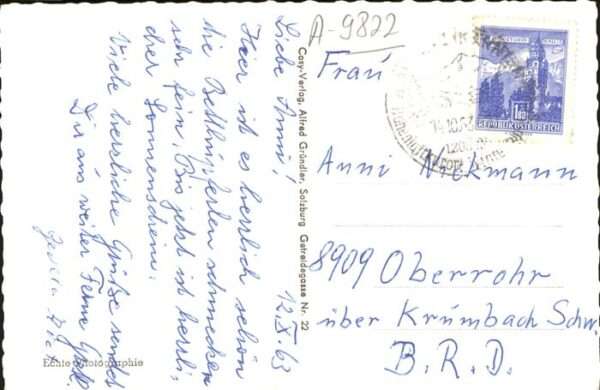 A-9822
12.X.63
Liebe Anni!
Hier ist es herrlich schön
die Betthupferln schmecken
sehr fein, Bis jetzt ist herrli-
cher Sonnenschein.
Viele herzliche Grüße sendet
Dir aus weiter Ferne
Echte Photographie
Cosy-Verlag, Alfred Gründler, Salzburg Getreidegasse Nr. 22
REPUBLIK ÖSTERREICH
1.80
Frau
Anni Nickmann
8909 Oberrohr
über Krumbach Schw.
B.R.D.